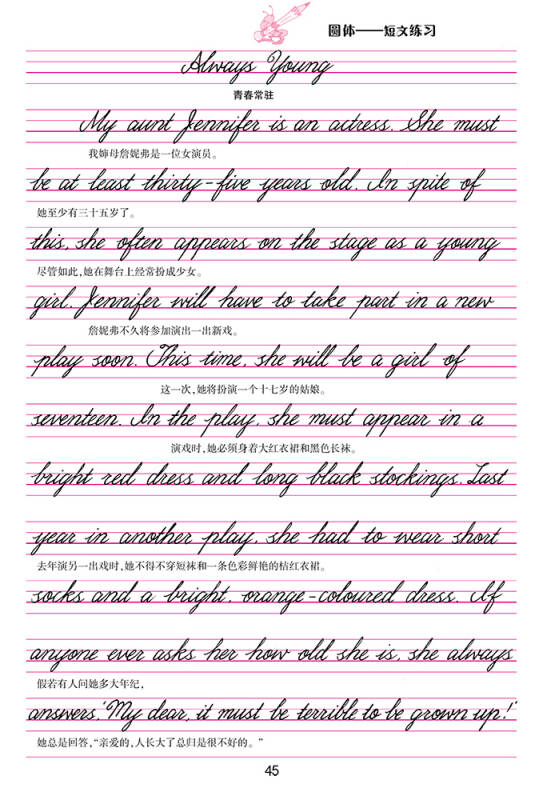 圆体——短文练习
Always Young
青春常驻
My aunt Jennifer is an actress. She must
我婶母詹妮弗是一位女演员。
be at least thirty-five years old. In spite of
她至少有三十五岁了。
this, she often appears on the stage as a young
尽管如此,她在舞台上经常扮成少女。
girl. Jennifer will have to take part in a new
詹妮弗不久将参加演出一出新戏。
play soon. This time, she will be a girl of
这一次,她将扮演一个十七岁的姑娘。
seventeen. In the play, she must appear in a
演戏时,她必须身着大红衣裙和黑色长袜。
bright red dress and long black stockings. Last
year in another play, she had to wear short
去年演另一出戏时,她不得不穿短袜和一条色彩鲜艳的桔红衣裙。
socks and a bright, orange-coloured dress. If
anyone ever asks her how old she is, she always
假若有人问她多大年纪,
answers 'My dear, it must be terrible to be grown up!'
她总是回答,“亲爱的,人长大了总归是很不好的。”
45